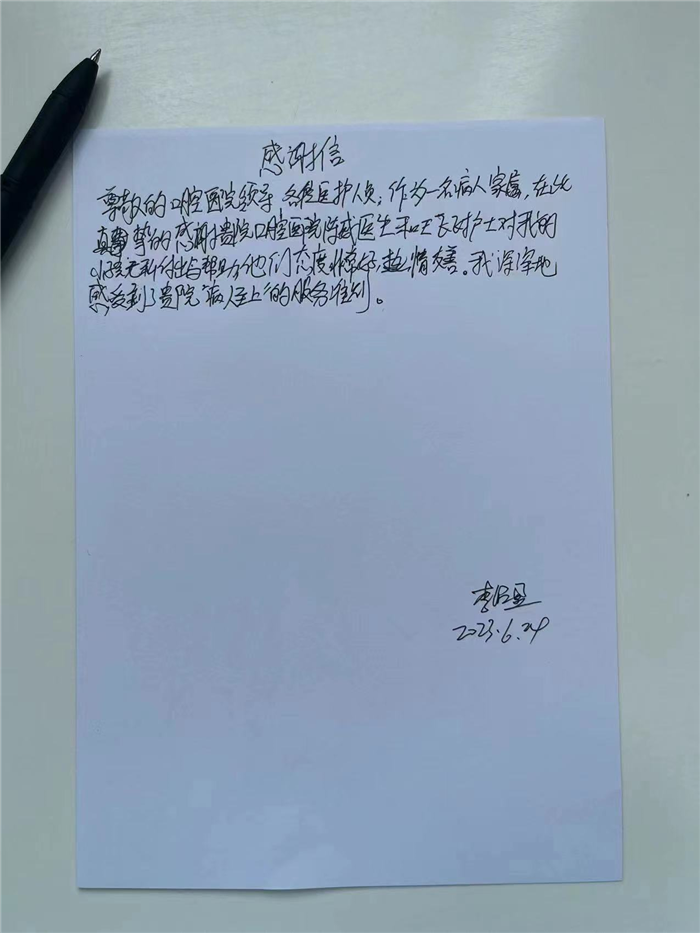 感谢信
尊敬的口腔医院领导 各位医护人员：作为一名病人家属，在此
真挚的感谢贵院口腔医院陈威医生和王 护士对我的
无私付出与帮助他们态度 好热情友善。我深深地
感受到了贵院"病人至上"的服务准则。
李
2023.6.24